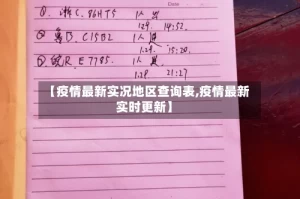 Q. 浙C.86HT5 1人
1.24. 14:52.
Q. 鲁B. C15B2 1人
1.24. 15:20.
Q. 皖R E7785. 1人
1.28 21:27
【疫情最新实况地区查询表,疫情最新
实时更新】